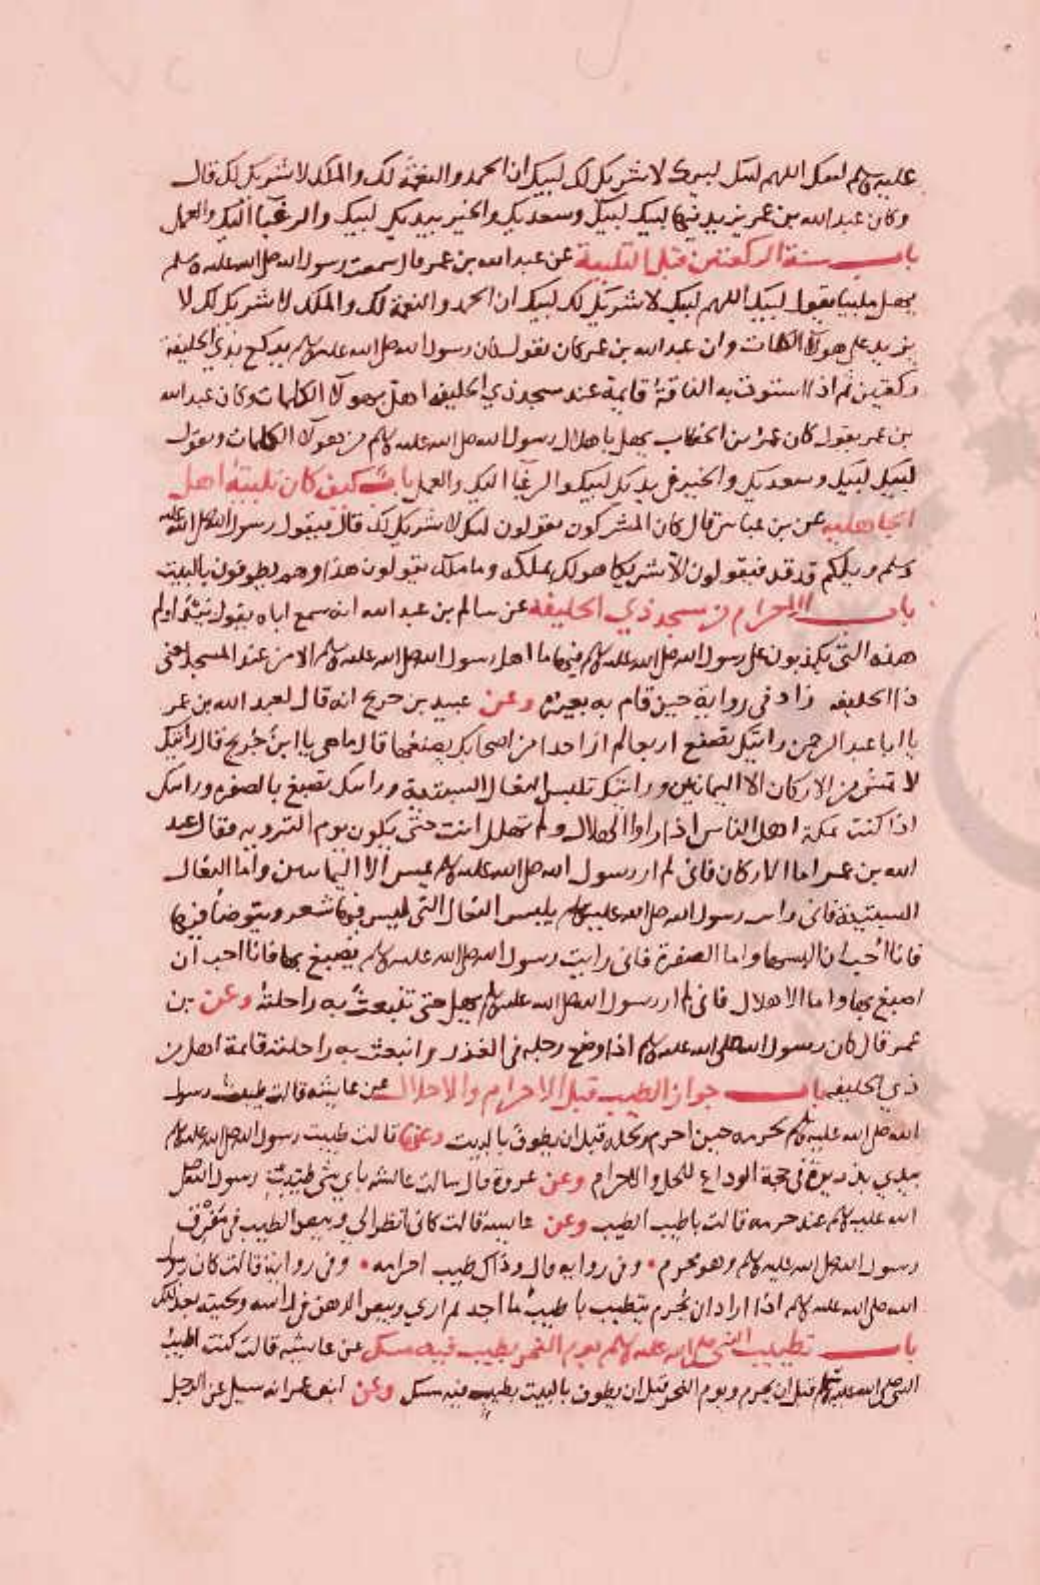 عليه وسلم لبيك اللهم لبيك لبيك لا شريك لك لبيك ان الحمد والنعمة لك والملك لا شريك لك قال
وكان عبد الله بن عمر يزيد فيها لبيك لبيك وسعديك والخير بيديك لبيك والرغبا اليك والعمل
باب سنة الركعتين قبل التلبية عن عبد الله بن عمر قال سمعت رسول الله صلى الله عليه وسلم
يهل ملبيا يقول لبيك اللهم لبيك لا شريك لك لبيك ان الحمد والنعمة لك والملك لا شريك لك لا
يزيد على هولآ الكلمات وان عبد الله بن عمر كان يقول كان رسول الله صلى الله عليه وسلم يركع بذي الحليفة
ركعتين ثم اذا استوت به الناقة قايمة عند مسجد ذي الحليفه اهل بهولآ الكلمات وكان عبد الله
بن عمر يقول كان عمر بن الخطاب يهل باهلال رسول الله صلى الله عليه وسلم من هولآ الكلمات ويقول
لبيك لبيك وسعديك والخير في يديك لبيك والرغبآ اليك والعمل باب كيف كان تلبية اهل
الجاهليه عن بن عباس قال كان المشركون يقولون لبيك لا شريك لك قال فيقول رسول الله صلى الله عليه
وسلم ويلكم قد قد فيقولون الا شريكا هو لك تملكه وما ملك يقولون هذا وهم يطوفون بالبيت
باب الاحرام من مسجد ذي الحليفة عن سالم بن عبد الله انه سمع اباه يقول بيدآوكم
هذه التي تكذبون على رسول الله صلى الله عليه وسلم فيها ما اهل رسول الله صلى الله عليه وسلم الا من عند المسجد يعني
ذا الحليفه زاد في رواية حين قام به بعيره وعن عبيد بن جريج انه قال لعبد الله بن عمر
يا ابا عبد الرحمن رايتك تصنع اربعا لم ار احدا من اصحابك يصنعها قال ما هي يا ابن جريج قال رايتك
لا تمس من الاركان الا اليمانيين ورايتك تلبس النعال السبتية ورايتك تصبغ بالصفره ورايتك
اذا كنت بمكة اهل الناس اذا راوا الهلال ولم تهلل انت حتى يكون يوم التروية فقال عبد
الله بن عمر اما الاركان فاني لم ار رسول الله صلى الله عليه وسلم يمس الا اليمانيين واما النعال
السبتية فاني رايت رسول الله صلى الله عليه وسلم يلبس النعال التي ليس فيها شعر ويتوضأ فيها
فانا احب ان البسها واما الصفرة فاني رايت رسول الله صلى الله عليه وسلم يصبغ بها فانا احب ان
اصبغ بها واما الاهلال فاني لم ار رسول الله صلى الله عليه وسلم يهل حتى تنبعث به راحلته وعن بن
عمر قال كان رسول الله صلى الله عليه وسلم اذا وضع رجله في الغرز وانبعثت به راحلته قايمة اهل من
ذي الحليفه باب جواز الطيب قبل الاحرام والاحلال عن عايشه قالت طيبت رسول
الله صلى الله عليه وسلم لحرمه حين احرم ولحله قبل ان يطوف بالبيت وعنها قالت طيبت رسول الله صلى الله عليه وسلم
بيدي بذريرة في حجة الوداع للحل والاحرام وعن عروة قال سالت عايشه باي شي طيبت رسول الله صلى
الله عليه وسلم عند حرمه قالت باطيب الطيب وعن عايشة قالت كاني انظر الي وبيص الطيب في مفرق
رسول الله صلى الله عليه وسلم وهو محرم وفي رواية قال وذاك طيب احرامه وفي رواية قالت كان رسول
الله صلى الله عليه وسلم اذا اراد ان يحرم يتطيب باطيب ما اجد ثم اري وبيص الدهن في راسه ولحيته بعد ذلك
باب تطييب النبي صلى الله عليه وسلم يوم النحر بطيب فيه مسك عن عايشه قالت كنت اطيب
النبي صلى الله عليه وسلم قبل ان يحرم ويوم النحر قبل ان يطوف بالبيت بطيب فيه مسك وعن ابن عمر انه سيل عن الرجل